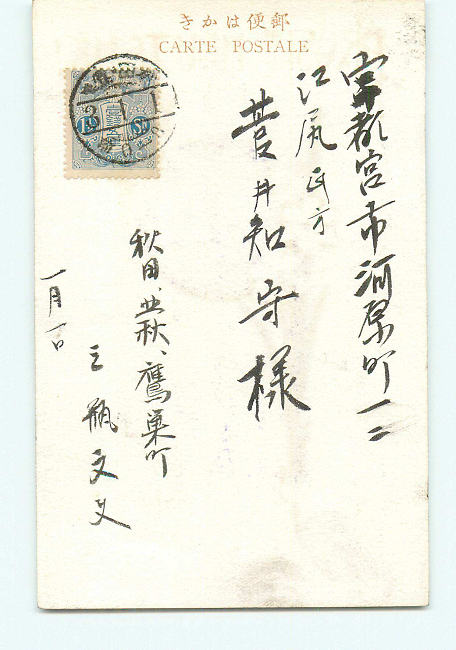 きかは便郵
CARTE POSTALE
宇都宮市河原町一二
江尻氏方
菅井知守様
秋田、北秋、鷹巣町
三瓶文
一月一日